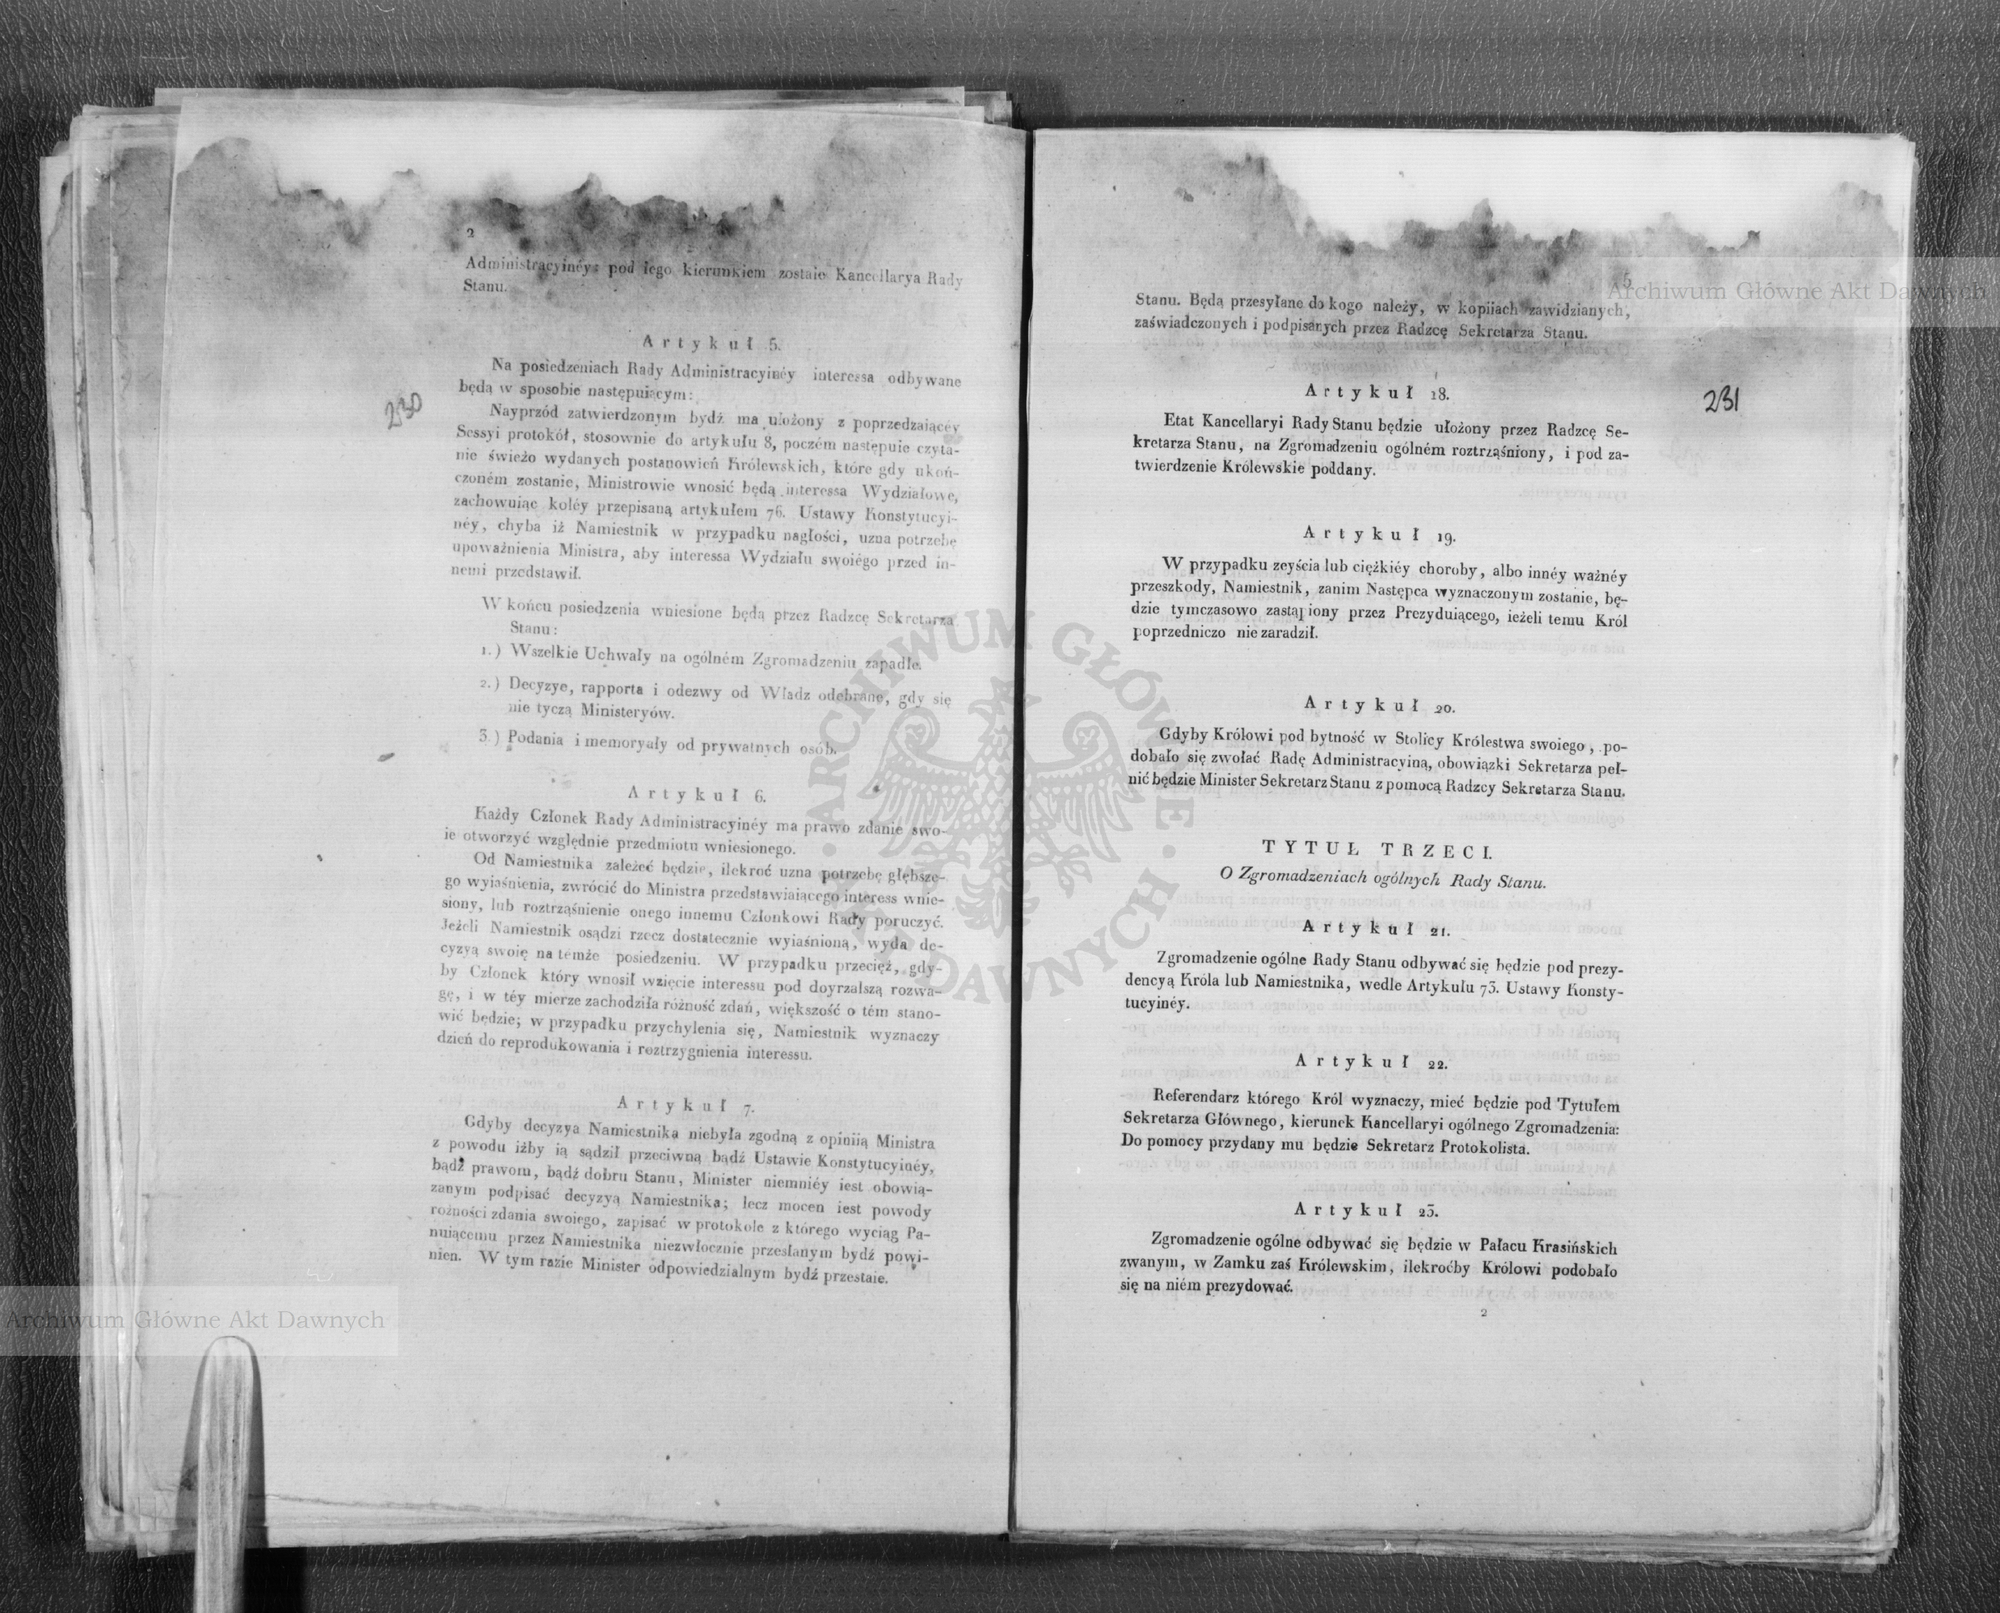 2
Administracyinéy: pod iego kierunkiem zostaie Kancellarya Rady
Stanu.
Artykuł 5.
Na posiedzeniach Rady Administracyinéy interessa odbywane
będą w sposobie następuiącym:
230
Nayprzód zatwierdzonym bydź ma ułożony z poprzedzaiącéy
Sessyi protokół, stosownie do artykułu 8, poczém następuie czyta-
nie świeżo wydanych postanowień Królewskich, które gdy ukoń-
czoném zostanie, Ministrowie wnosić będą interessa Wydziałowe,
zachowuiąc koléy przepisaną artykułem 76. Ustawy Konstytucyi-
néy, chyba iż Namiestnik w przypadku nagłości, uzna potrzebę
upoważnienia Ministra, aby interessa Wydziału swoiégo przed in-
nemi przedstawił.
W końcu posiedzenia wniesione będą przez Radzcę Sekretarza
Stanu:
1.) Wszelkie Uchwały na ogólném Zgromadzeniu zapadłe.
2.) Decyzye, rapporta i odezwy od Władz odebrane, gdy się
nie tyczą Ministeryów.
3.) Podania i memoryały od prywatnych osób.
Artykuł 6.
Każdy Członek Rady Administracyinéy ma prawo zdanie swo-
ie otworzyć względnie przedmiotu wniesionego.
Od Namiestnika zależeć będzie, ilekroć uzna potrzebę głębsze-
go wyiaśnienia, zwrócić do Ministra przedstawiaiącego interess wnie-
siony, lub roztrząśnienie onego innemu Członkowi Rady poruczyć.
Jeżeli Namiestnik osądzi rzecz dostatecznie wyiaśnioną, wyda de-
cyzyą swoię na témże posiedzeniu. W przypadku przecięż, gdy-
by Członek który wnosił wzięcie interessu pod doyrzalszą rozwa-
gę, i w téy mierze zachodziła różność zdań, większość o tém stano-
wić będzie; w przypadku przychylenia się, Namiestnik wyznaczy
dzień do reprodukowania i roztrzygnienia interessu.
Artykuł 7.
Gdyby decyzya Namiestnika niebyła zgodną z opiniią Ministra
z powodu iżby ią sądził przeciwną bądź Ustawie Konstytucyinéy,
bądź prawom, bądź dobru Stanu, Minister niemniéy iest obowią-
zanym podpisać decyzyą Namiestnika; lecz mocen iest powody
rożności zdania swoiego, zapisać w protokole z którego wyciąg Pa-
nuiącemu przez Namiestnika niezwłocznie przesłanym bydź powi-
nien. W tym razie Minister odpowiedzialnym bydź przestaie.
Archiwum Główne Akt Dawnych
5
Archiwum Główne Akt Dawnych
Stanu. Będą przesyłane do kogo należy, w kopiiach zawidzianych,
zaświadczonych i podpisanych przez Radzcę Sekretarza Stanu.
Artykuł 18.
231
Etat Kancellaryi Rady Stanu będzie ułożony przez Radzcę Se-
kretarza Stanu, na Zgromadzeniu ogólném roztrząśniony, i pod za-
twierdzenie Królewskie poddany.
Artykuł 19.
W przypadku zeyścia lub ciężkiéy choroby, albo innéy ważnéy
przeszkody, Namiestnik, zanim Następca wyznaczonym zostanie, bę-
dzie tymczasowo zastąpiony przez Prezyduiącego, ieżeli temu Król
poprzedniczo nie zaradził.
Artykuł 20.
Gdyby Królowi pod bytność w Stolicy Królestwa swoiego, po-
dobało się zwołać Radę Administracyiną, obowiązki Sekretarza peł-
nić będzie Minister Sekretarz Stanu z pomocą Radzcy Sekretarza Stanu.
TYTUŁ TRZECI.
O Zgromadzeniach ogólnych Rady Stanu.
Artykuł 21.
Zgromadzenie ogólne Rady Stanu odbywać się będzie pod prezy-
dencyą Króla lub Namiestnika, wedle Artykułu 73. Ustawy Konsty-
tucyinéy.
Artykuł 22.
Referendarz którego Król wyznaczy, mieć będzie pod Tytułem
Sekretarza Głównego, kierunek Kancellaryi ogólnego Zgromadzenia:
Do pomocy przydany mu będzie Sekretarz Protokolista.
Artykuł 23.
Zgromadzenie ogólne odbywać się będzie w Pałacu Krasińskich
zwanym, w Zamku zaś Królewskim, ilekroćby Królowi podobało
się na niém prezydować.
2
ARCHIWUM GŁÓWNE AKT DAWNYCH